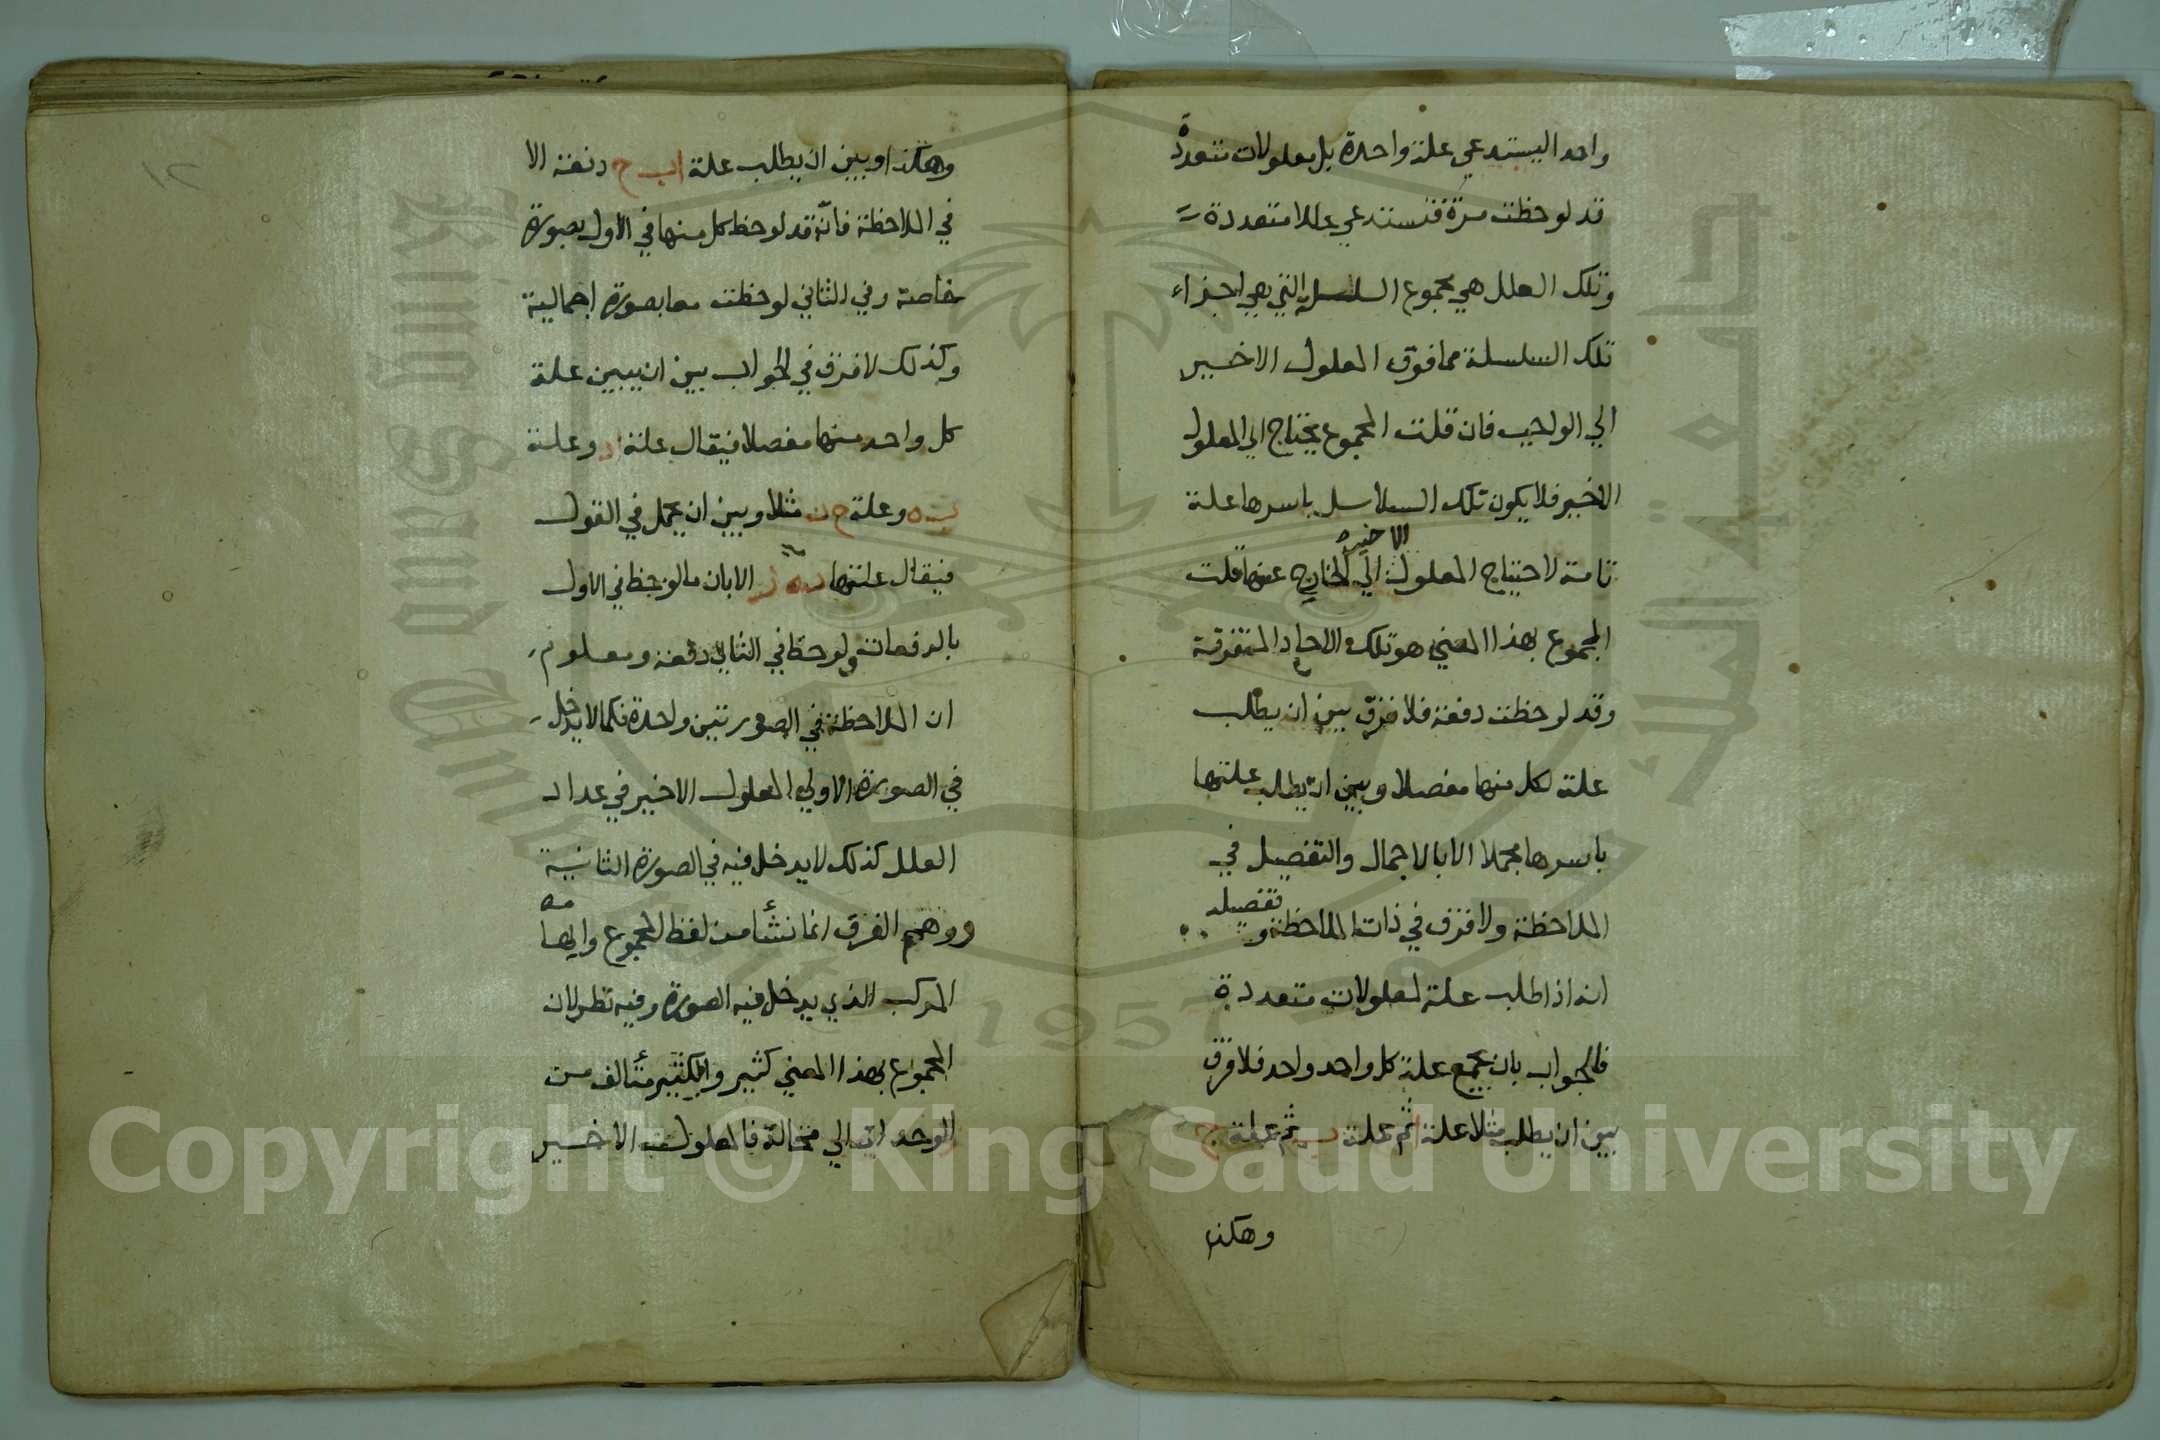 واحد اليستدعي علة واحدة بل معلولات متعددة
قد لوحظت مرة فتستدعي عللا متعددة
وتلك العلل هي مجموع السلسلة التي هي اجزاء
تلك السلسلة مما فوق المعلول الاخير
الي الواجب فان قلت المجموع يحتاج الي المعلول
الاخير فلا يكون تلك السلاسل باسرها علة
الاخيرة
تامة لاحتياج المعلول الي الخارج عنها قلت
المجموع بهذا المعني هو تلك الاحاد المتفرقة
وقد لوحظت دفعة فلا فرق بين ان يطلب
علة لكل منها مفصلا وبين ان يطلب علتها
باسرها مجملا الا بالاجمال والتفصيل في
تفصيله
الملاحظة ولا فرق في ذات الملاحظة و
انه اذا طلب علة لمعلولات متعددة
فالجواب بان يجمع علة كل واحد واحد فلا فرق
بين ان يطلب مثلا علة ا ثم علة ب ثم علة ج
وهكذا
١٢
وهكذا وبين ان يطلب علة ا ب ج دفعة الا
في الملاحظة فانه قد لوحظ كل منها في الاول بصورة
خاصة وفي الثاني لوحظت معا بصورة اجمالية
وكذلك لا فرق في الجواب بين ان يبين علة
كل واحد منها مفصلا فيقال علة ا د وعلة
ب ه وعلة ج مثلا وبين ان يجمل في القول
فيقال علتها الا بان ما لوحظ في الاول
بالدفعات ولوحظ في الثاني دفعة ومعلوم
ان الملاحظة في الصورتين واحدة فكما لا يدخل
في الصورة الاولي المعلول الاخير في عداد
العلل كذلك لا يدخل فيه في الصورة الثانية
ووهم الفرق انما نشأ من لفظ المجموع وايهامه
المركب الذي يدخل فيه الصورة وفيه نظر لان
المجموع بهذا المعني كثير والكثير متألف من
الوحدات لا محالة فالمعلول الاخير
Copyright © King Saud University
King Saud University
جامعة الملك سعود
1957